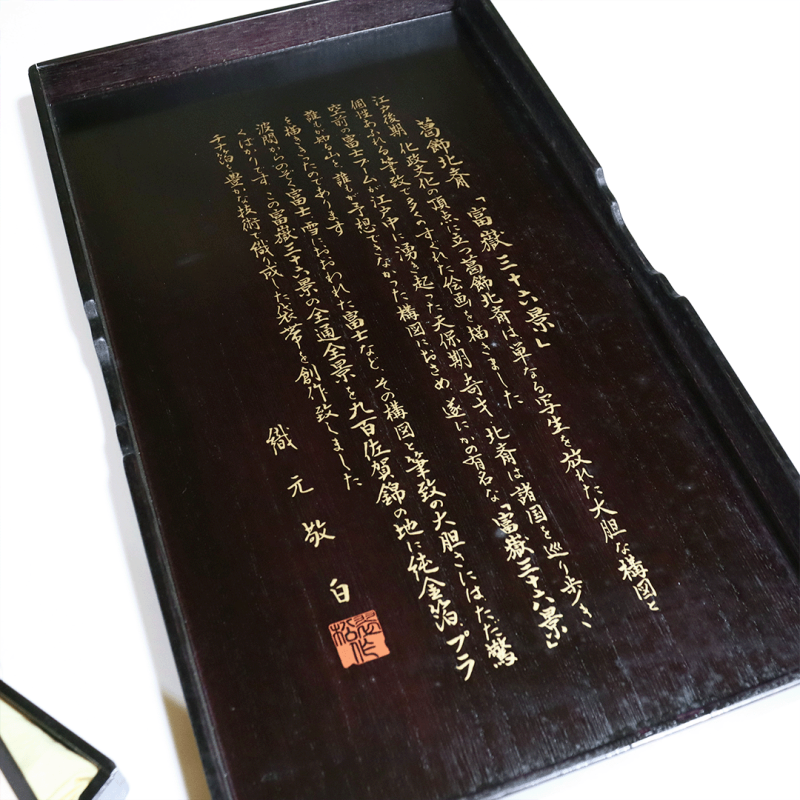 葛飾北斎「富嶽三十六景」
江戸後期、化政文化の頂点に立つ葛飾北斎は単なる写生を放れた大胆な構図と
個性あふれる筆致で多くすぐれた絵画を描きました
空前の富士ブームが江戸中に湧き起った天保期、奇才、北斎は諸国を巡り歩き
誰もが知る山を、誰もが予想できなかった構図におさめ、遂にかの有名な「富嶽三十六景」
を描ききったのであります
波間からのぞく富士、雪におおわれた富士など、その構図と筆致の大胆さにはただ驚
くばかりです。この富嶽三十六景の全通全景を九百佐賀錦の地に純金箔、プラ
チナ箔を豊かな技術で織り成した袋帯を創作致しました
織元敬白